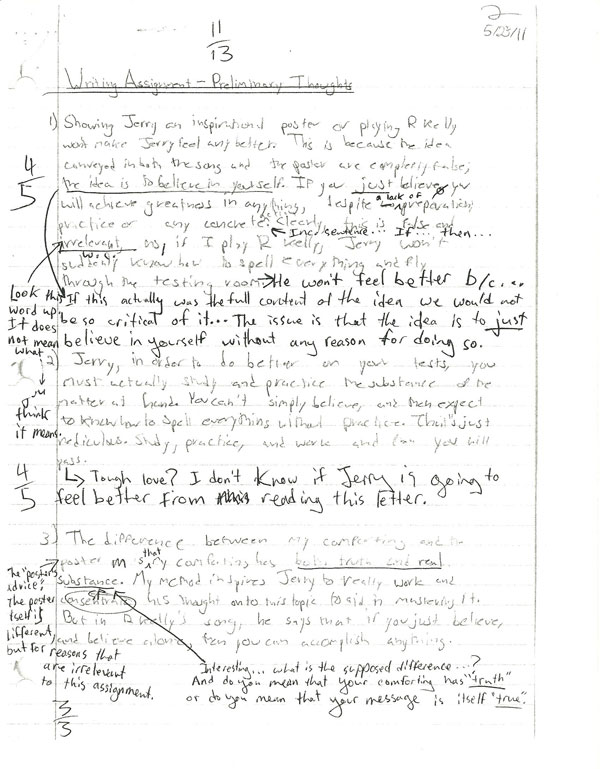 2
5/23/11
11
13
Writing Assignment - Preliminary Thoughts
1) Showing Jerry an inspirational poster or playing R Kelly
won't make Jerry feel any better. This is because the idea
conveyed in both the song and the poster are completely false;
4
5
the idea is to believe in yourself. If you just believe you
will achieve greatness in anything, despite a lack of preparation,
practice or any concrete Clearly, this is false and
← Inc. sentence... If... then...
irrelevant, no, if I play R Kelly, Jerry won't
w.c.
suddenly know how to spell everything and fly
through the testing room. → He won't feel better b/c...
Look this
word up.
It does
not mean
what
you
think
it means.
If this actually was the full content of the idea we would not
be so critical of it... The issue is that the idea is to just
believe in yourself without any reason for doing so.
2) Jerry, in order to do better on your tests, you
must actually study and practice the substance of the
matter at hand. You can't simply believe, and then expect
to know how to spell everything without practice. That's just
rediculous. Study, practice, and work and you will
pass.
4
5
↳ Tough love? I don't know if Jerry is going to
feel better from reading this letter.
3) The difference between my comforting and the
poster is that my comforting has both truth and real
substance. My method inspires Jerry to really work and
sp
consentrate his thought onto this topic to aid in mastering it.
But in R Kelly's song, he says that if you just believe,
and believe alone, then you can accomplish anything.
The "poster's
advice";
The poster
itself is
different,
but for
reasons that
are irrelevant
to this assignment.
Interesting... what is the supposed difference...?
And do you mean that your comforting has "truth"
or do you mean that your message is itself "true".
3
3